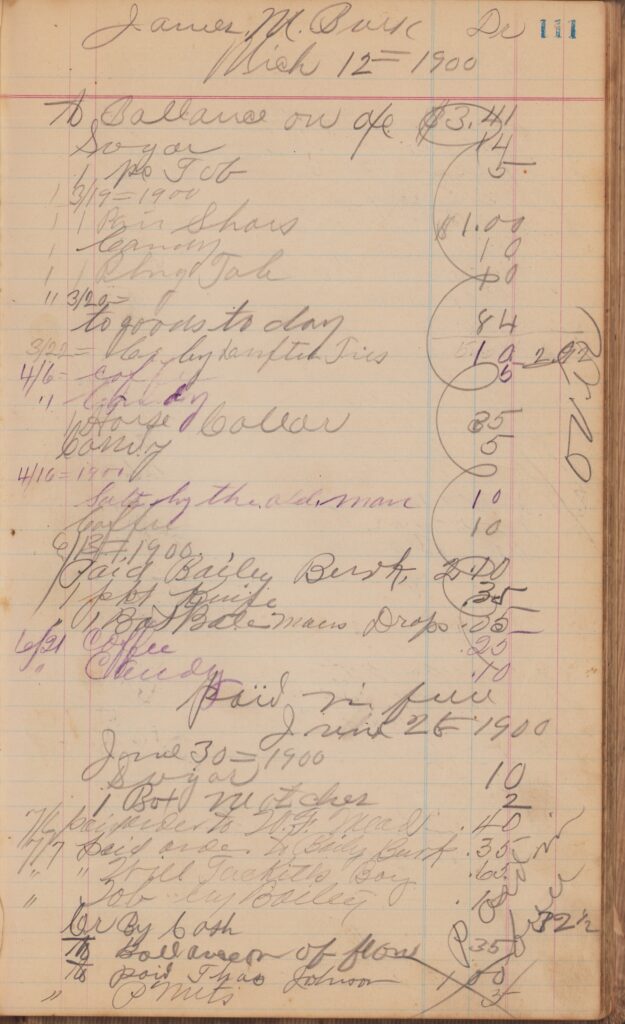 James M. Burk Dr 111
Mich 12 = 1900
To Ballance on a/c $3.41
Sugar 14
1 ps Tob 5
1 3/19 = 1900
1 1 Pair Shoes $1.00
1 Candy 10
1 1 Plug Tob 10
" 3/20 =
to goods to day 84
3/22 = Cr by Ties 10 2.92
4/6 = coffee 5
" Candy
1 Horse Collar 35
Candy 5
OVER
4/16 = 1900
Salts by the old man 10
Coffee 10
6/13 = 1900
Paid Bailey Burk 2.10
1 pkt Knife .35
" 1 Bot Batemans Drops .05
6/21 Coffee .25
" Candy .10
Paid in full
June 25 1900
June 30 = 1900
Sugar 10
1 Box Matches 2
7/6 paid order to W.F. .40
7/7 paid order to Baily Burk .35
" " Will Tacketts Boy .65
" Tob by Bailey
Cr By Cash 32 1/2
To Ballance on of flour 35
To paid Thao Johnson 1.00
" P Nuts 5
Paid in full